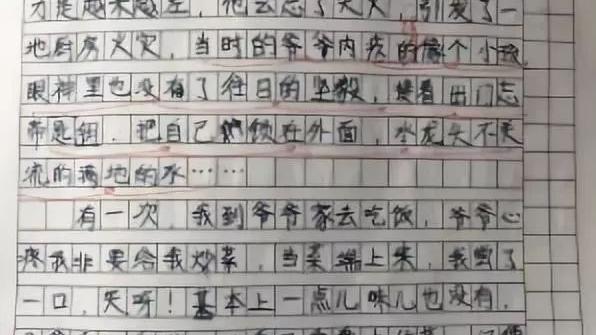 才是越来越差,他会忘了关火,引发了一
地厨房火灾,当时的爷爷内疚的像个小孩
眼神里也没有了往日的坚毅,接着出门忘
带是钥,把自己锁在外面,水龙头不关
流的满地的水……
有一次,我到爷爷家去吃饭,爷爷心
疼我非要给我炒菜,当菜端上来,我尝了
一口,天呀!基本上一点儿味儿也没有,